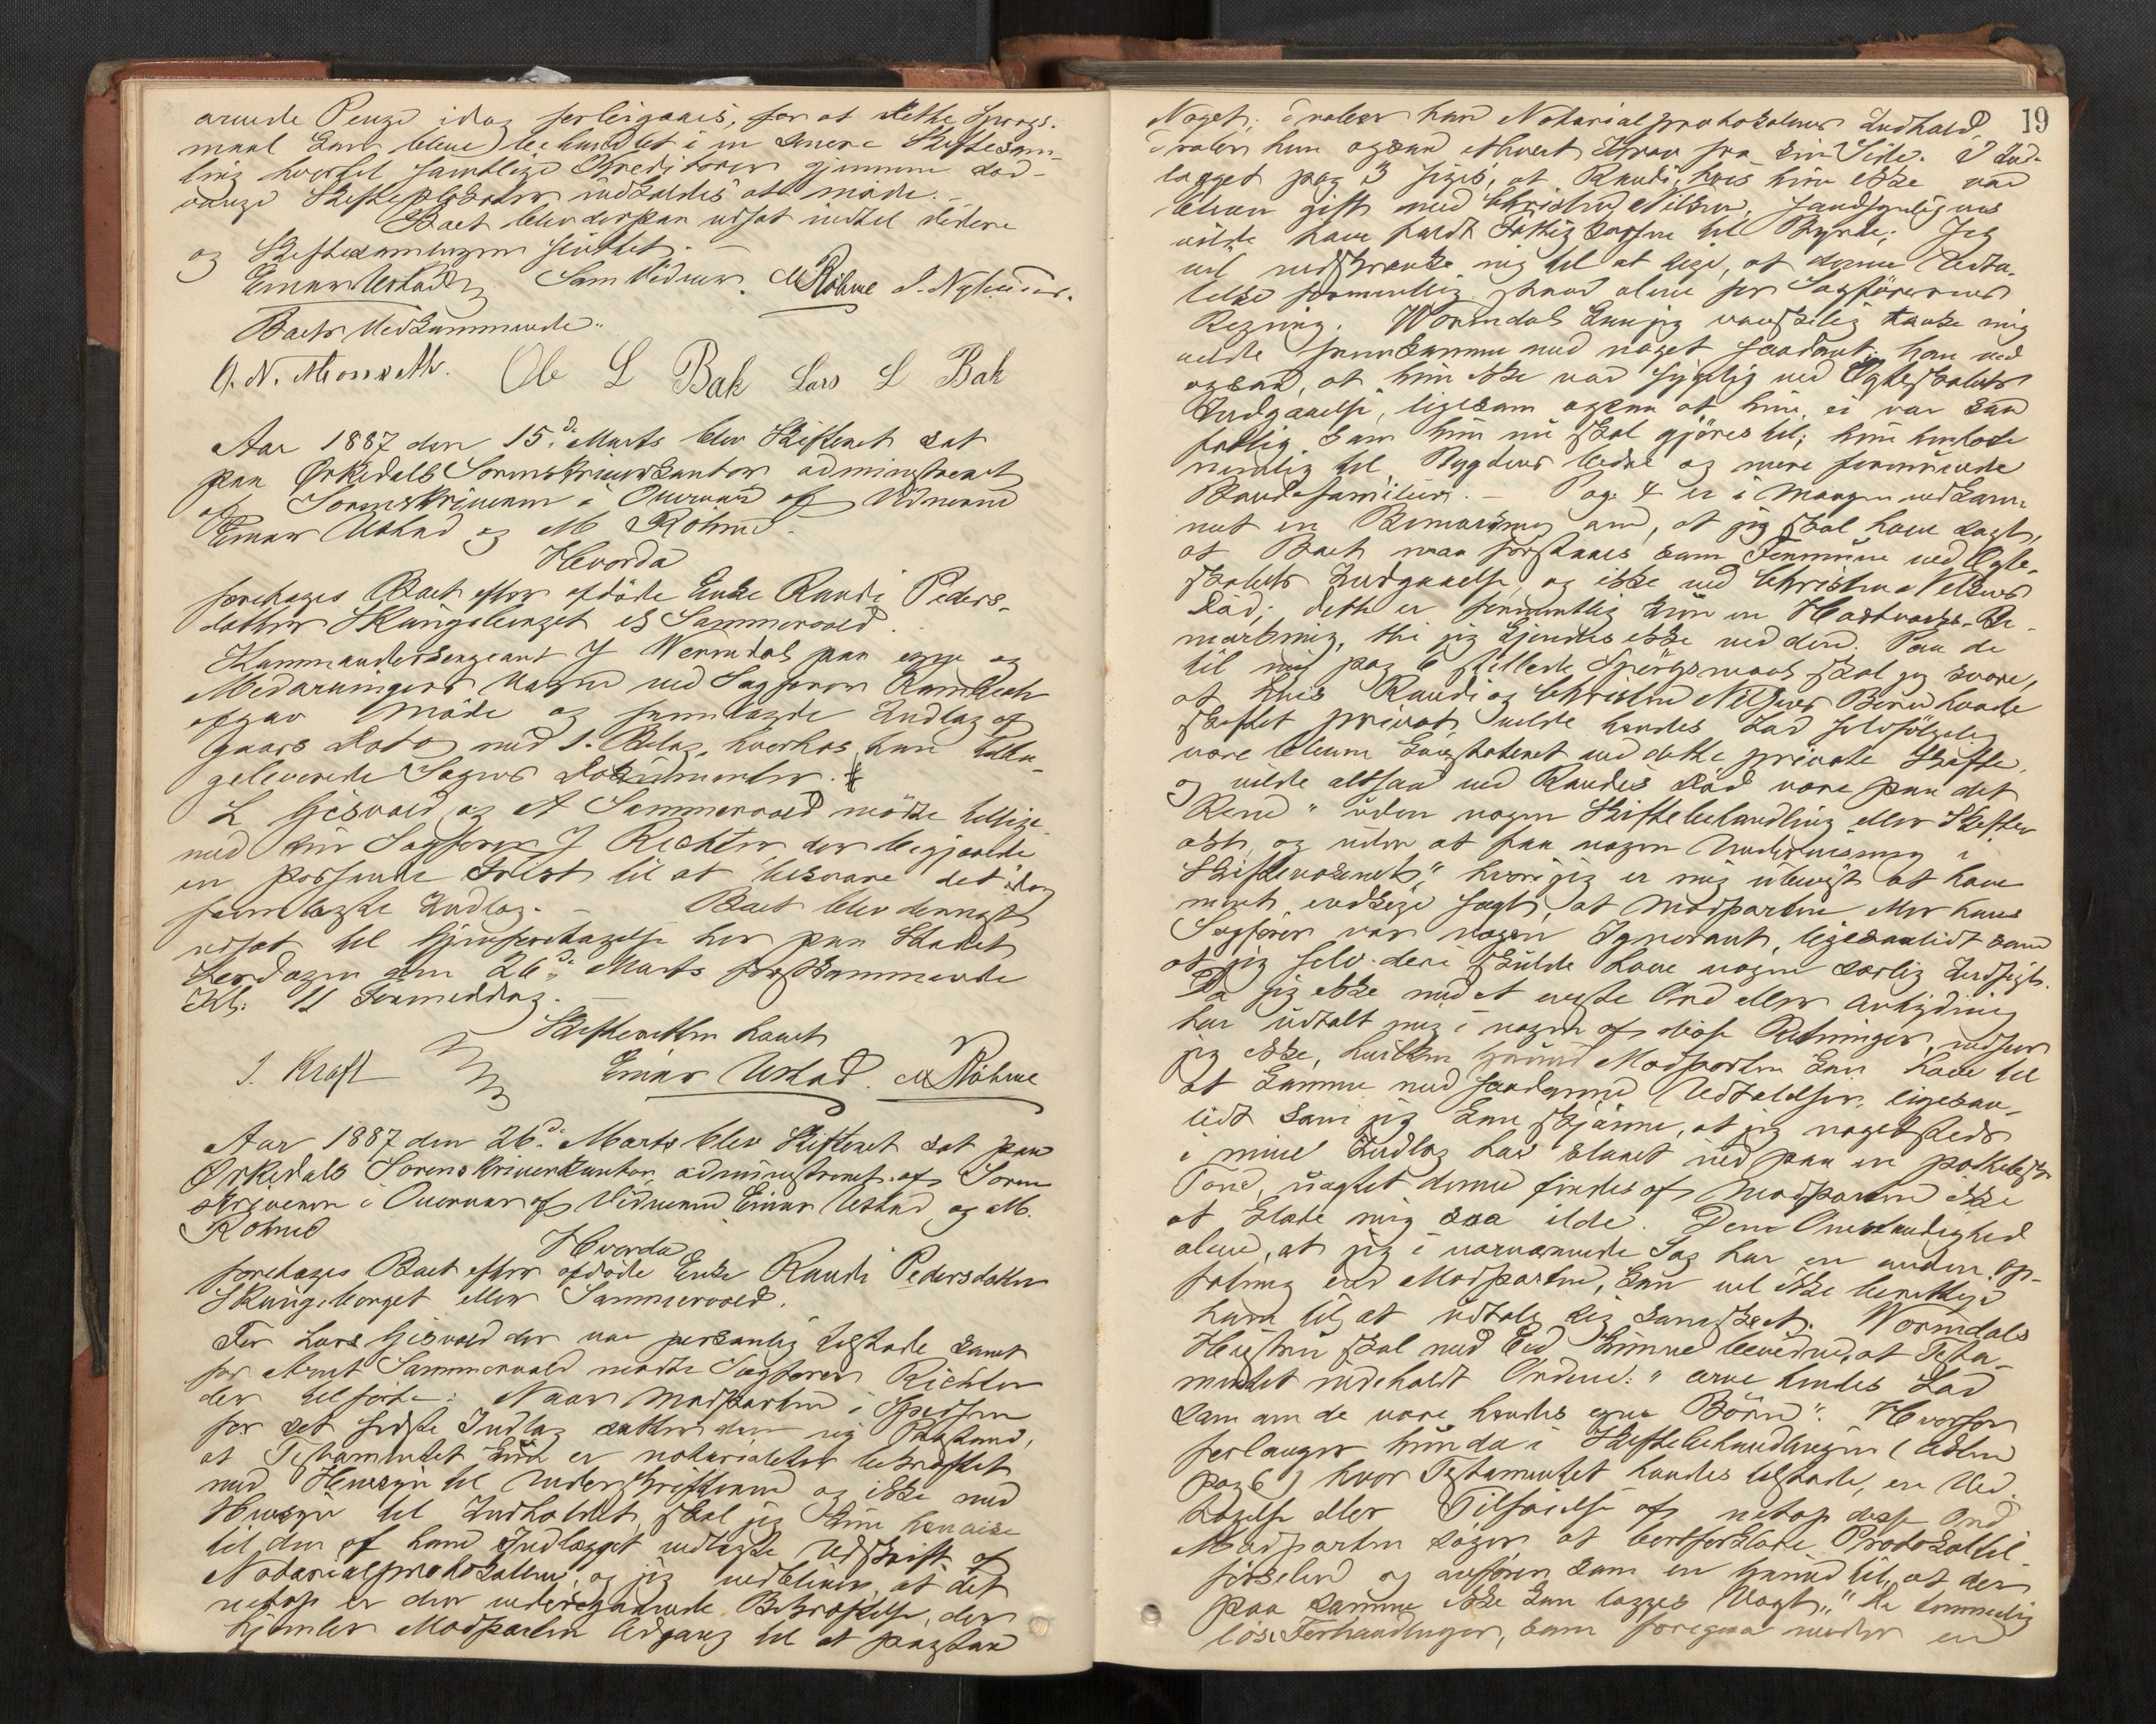 arvede Penge idag forlegges, for at dette Sprogs-
maal kan blive behandlet i en senere Skiftesam-
ling hvortil samtlige Kreditorer gjennem lov-
Skifteplakater indkaldes at møde.
Boet blev derpaa udsat indtil videre
og Skiftesamlingen sluttet.
Einar Ustad Som Vidner. M Røhme
Boets Vedkommende:
Ole L Bak Lars L Bak
Aar 1887 den 15de Marts blev Skifteret sat
paa Ørkedals Sorenskriverkontor administreret
af Sorenskriveren i Overvær af Vidnerne
Einar Ustad og M Røhme.
Hvorda
foretages Boet efter afdøde Enke Randi Peders-
datter Skungelenget el Sommervold.
Kommandersergeant J Wormdal paa egne og
Medarvingers Vegne ved Sagfører
afgav Møde og fremlagde Indlæg af
Gaars Dato med 1. Bilag, hverhos han tilba-
geleverede Sagens Dokumenter.
L Gisvold og A Sommervold mødte tillige-
med sin Sagfører J Richter, der begjærede
en passende Frist til at besvare det idag
fremlagte Indlæg. – Boet blev dernæst
udsat til Gjenforetagelse her paa Stedet
Lørdagen den 26de Marts førstkommende
Kl: 11 Formiddag.
Skifteretten hævet
J. Kraft Einar Ustad. M Røhme
Aar 1887 den 26de Marts blev Skifteret sat paa
Ørkedals Sorenskriverkontor, administreret af Soren
skriveren i Overvær af Vidnerne Einar Ustad og M.
Røhme
Hvorda
foretages Boet efter afdøde Enke Randi Pedersdatter
Skungelenget eller Sommervold.
For Lars Gisvold der var personlig tilstede samt
for Arnt Sommervold mødte Sagfører Richter
der tilførte: Naar Modparten i Spidsen
for det sidste Indlæg sætter den nye Paastand,
at Testamentet kun er notarialiter bekræftet
med Hensyn til Underskrifterne og ikke med
Hensyn til Indholdet, skal jeg kun henvise
til den af ham Indlægget vedlagte Udskrift af
Notarialprotokollen, og jeg vedbliver, at det
netop er den vedrørende Bekræftelse, der
hjemler Modparten Adgang til at paastaa
19
Noget; Indhold,
han ogsaa ethvert Krav fra sin Side. I Ind-
lægget pag 3 siges, at Randi, hvis hun ikke var
bleven gift med Christen Nilsen, sandsynligvis
vilde have faldt Fattigkassen til Byrde; Jeg
vil indskrænke mig til at sige, at denne Udta-
lelse formentlig staar alene for Sagførerens
Regning. Wormdal kan jeg vanskelig tænke mig
vilde fremkomme med noget saadant; han ved
ogsaa, at hun ikke var sygelig ved Ægteskabets
Indgaaelse, ligesom ogsaa at hun ei var saa
fattig som hun nu skal gjøres til; hun henhørte
nemlig til Bygdens bedre og mere formuende
Bondefamilier. – Page 4 er i Margen vedkom-
met en Bemærkning om, at jeg skal have sagt,
at Boet maa forstaaes som Formuen ved Ægte-
skabets Indgaaelse og ikke ved Christen Nilsens
Død; dette er formentlig kun en Hastværks-Be-
mærkning, thi jeg kjendes ikke ved den. Paa de
til mig pag 6 stillede Spørgsmaal skal jeg svare,
at hvis Randi og Christen Nilsens Børn havde
skiftet privat vilde hendes Lod selvfølgelig
være bleven konstateret ved dette private Skifte,
og vilde altsaa ved Randis Død være paa det
Rene" uden nogen Skiftebehandling eller Skifte-
ret, og uden at faa nogen Undervisning i
Skiftevæsenet," hvori jeg er mig ubevidst at have
ment, endsige sagt, at Modparten eller hans
Sagfører var nogen Ignorant, ligesaalidt som
at jeg selv deri skulde have nogen særlig Indsigt.
Da jeg ikke med et eneste Ord eller Antydning
har udtalt mig i nogen af disse Retninger, indser
jeg ikke, hvilken Grund Modparten kan have til
at komme med saadanne Udtalelser, ligesaa-
lidt som jeg kan skjønne, at jeg nogetsteds
i mine Indlæg har slaaet ind paa en
Tone, uagtet denne findes af Modparten ikke
at klæde mig saa ilde. Den Omstændighed
alene, at jeg i nærværende Sag har en anden Op-
fatning end Modparten, kan vel ikke berettige
ham til at udtale sig saaledes. Wormdals
Hustru skal med Ed kunne bevidne, at Testa-
mentet indeholdt Ordene: "arve hendes Lod
som om de vare hendes egne Børn". Hvorfor
forlanger hun da i Skiftebehandlingen
pag 6) hvor Testamentet havdes tilstede, en Ved-
tagelse eller Tilføielse af netop disse Ord
Modparten søger at bortforklare Protokoltil-
førselen og anfører som en Grund til, at der
paa samme ikke kan lægges Vægt, "de
løse Forhandlinger, som foregaa under en